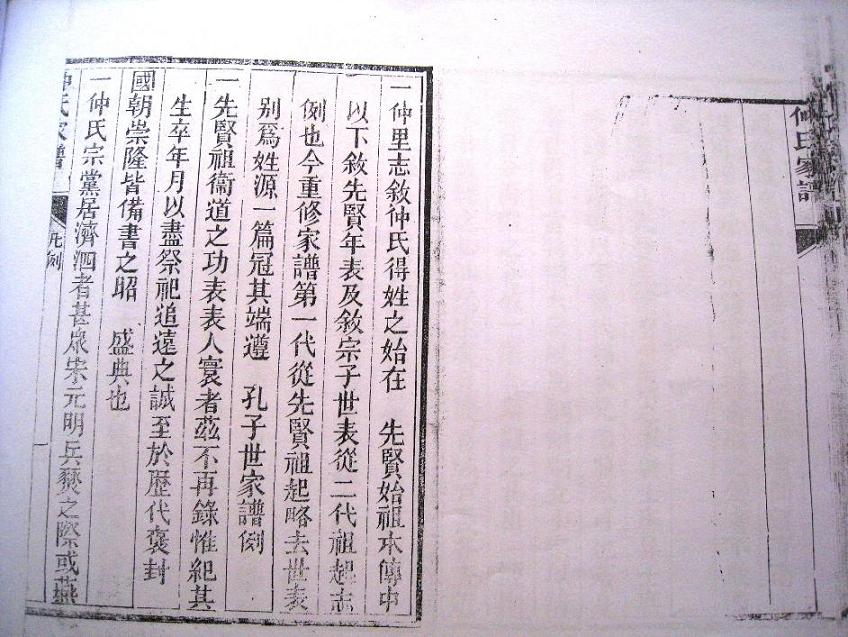 仲氏家譜
一仲里志敘仲氏得姓之始在 先賢始祖本傳中
以下敘先賢年表及敘宗子世表從二代祖起志
例也今重修家譜第一代從先賢祖起略去世表
別爲姓源一篇冠其端遵 孔子世家譜例
一先賢祖衞道之功表表人寰者茲不再錄惟紀其
生卒年月以盡祭祀追遠之誠至於歷代褒封
國朝崇隆皆備書之昭 盛典也
一仲氏宗黨居濟泗者甚衆宋元明兵燹之際或燕
仲氏家譜 凡例 一